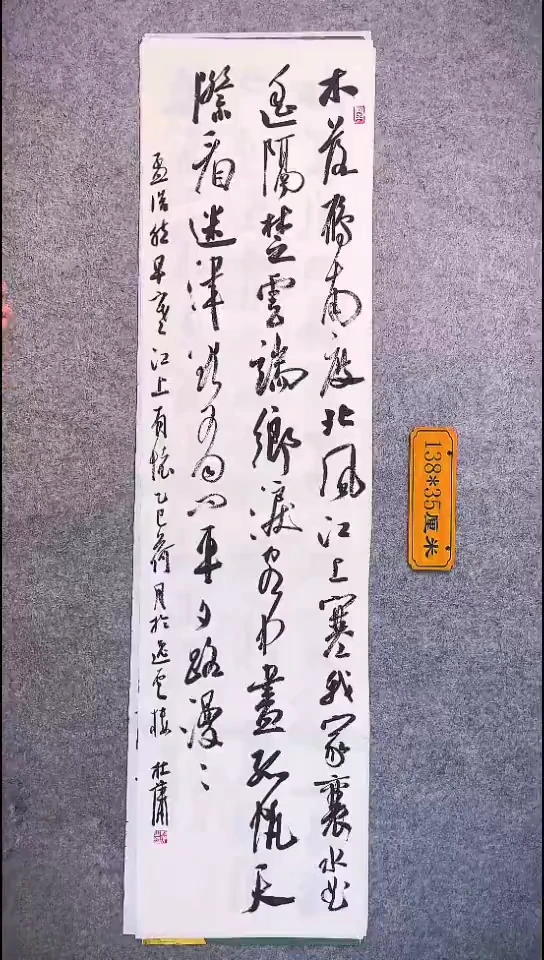 木落雁南度北风江上寒我家襄水曲
遥隔楚雲端鄉淚客中盡孤帆天
際看迷津欲有问平夕路漫〻
孟浩然早寒江上有懷乙巳荷月於逸雲樓 杜
138*35厘米